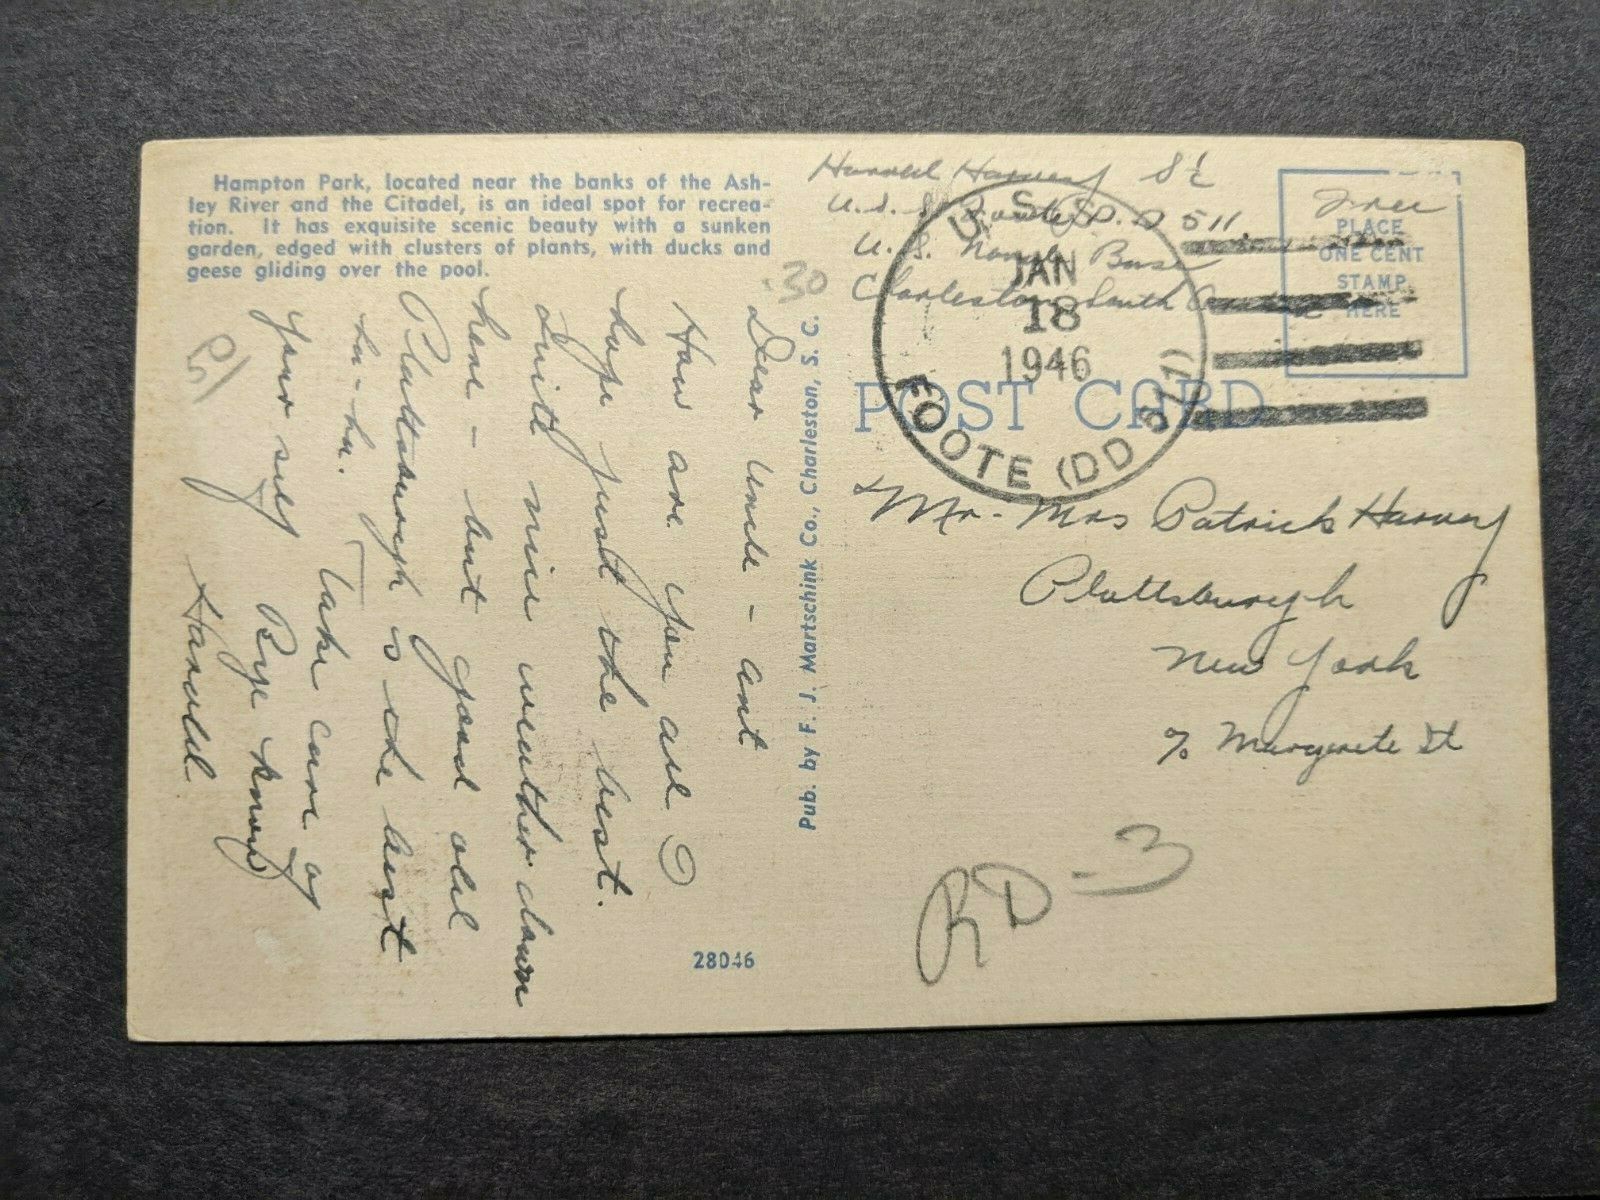 Hampton Park, located near the banks of the Ash-
ley River and the Citadel, is an ideal spot for recrea-
tion. It has exquisite scenic beauty with a sunken
garden, edged with clusters of plants, with ducks and
geese gliding over the pool.
Dear Uncle - ant
How are you all?
hope just the best.
Quite nice weather down
here - but good old
Plattsburgh is the best
hu-hu. Take care of
your self Bye know
Harold
30
28046
Pub. by F. J. Martschink Co., Charleston, S. C.
Harold Harvey S 1/c
U.S.S. Foote D.D 511
U.S. Naval Base
Charleston, South
U. S. S.
JAN
18
1946
FOOTE (DD 511)
Free
PLACE
ONE CENT
STAMP
HERE
POST CARD
Mr - Mrs Patrick Harvey
Plattsburgh
New York
c/o Margarete St
RD-3